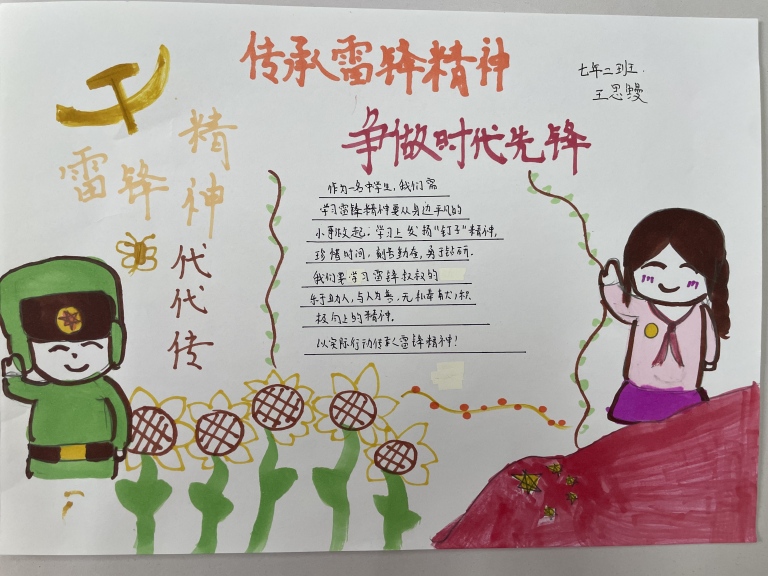 传承雷锋精神
七年二班.
王思鳗
争做时代先锋
雷锋
精神
代代传
作为一名中学生,我们需
学习雷锋精神要从身边平凡的
小事做起:学习上发扬"钉子"精神,
珍惜时间,刻苦勤奋,勇于钻研.
我们要学习雷锋叔叔的
乐于助人,与人为善,无私奉献,积
极向上的精神.
以实际行动传承雷锋精神!